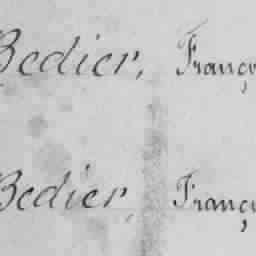 Bedier, Franço
Bedier, Franço